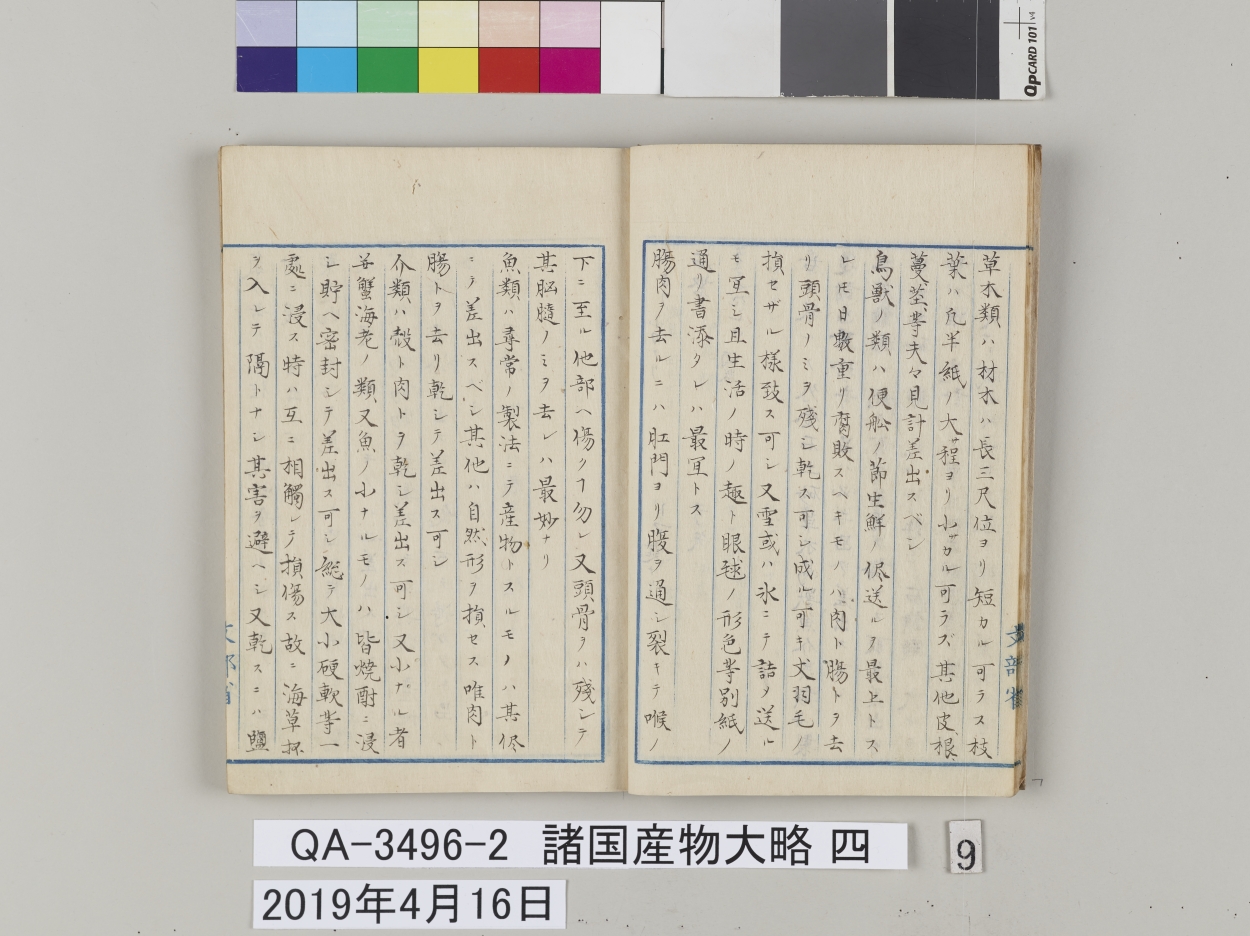 QPCARD 101 v4
草木類ハ材木ハ長三尺位ヨリ短カル可ラス枝
葉ハ凡半紙ノ大サ程ヨリ小サカル可ラズ其他皮根
蔓茎等夫々見計差出スベシ
鳥獣ノ類ハ便舩ノ節生鮮ノ侭送ルヲ最上トス
レ𪜈日數重リ腐敗スヘキモノハ肉ト腸トヲ去
リ頭骨ノミヲ殘シ乾ス可シ成ル可キ丈羽毛ノ
損セザル樣致ス可シ又雪或ハ氷ニテ詰メ送ル
モ冝シ且生活ノ時ノ趣ト眼毬ノ形色等別紙ノ
通リ書添タレハ最冝トス
腸肉ヲ去ルニハ肛門ヨリ腹ヲ通シ裂キテ喉ノ
文部省
下ニ至ル他部ヘ傷クヿ勿レ又頭骨ヲハ殘シテ
其脳髄ノミヲ去レハ最妙ナリ
魚類ハ尋常ノ製法ニテ産物トスルモノハ其侭
ニテ差出スベシ其他ハ自然形ヲ損セス唯肉ト
腸トヲ去リ乾シテ差出ス可シ
介類ハ殻ト肉トヲ乾シ差出ス可シ又小ナル者
並蟹海老ノ類又魚ノ小ナルモノハ皆焼酎ニ浸
シ貯ヘ密封シテ差出ス可シ総テ大小硬軟等一
處ニ浸ス時ハ互ニ相觸レテ損傷ス故ニ海草抔
ヲ入レテ隔トナシ其害ヲ避ヘシ又乾スニハ鹽
文部省
QA-3496-2 諸国産物大略 四
9
2019年4月16日